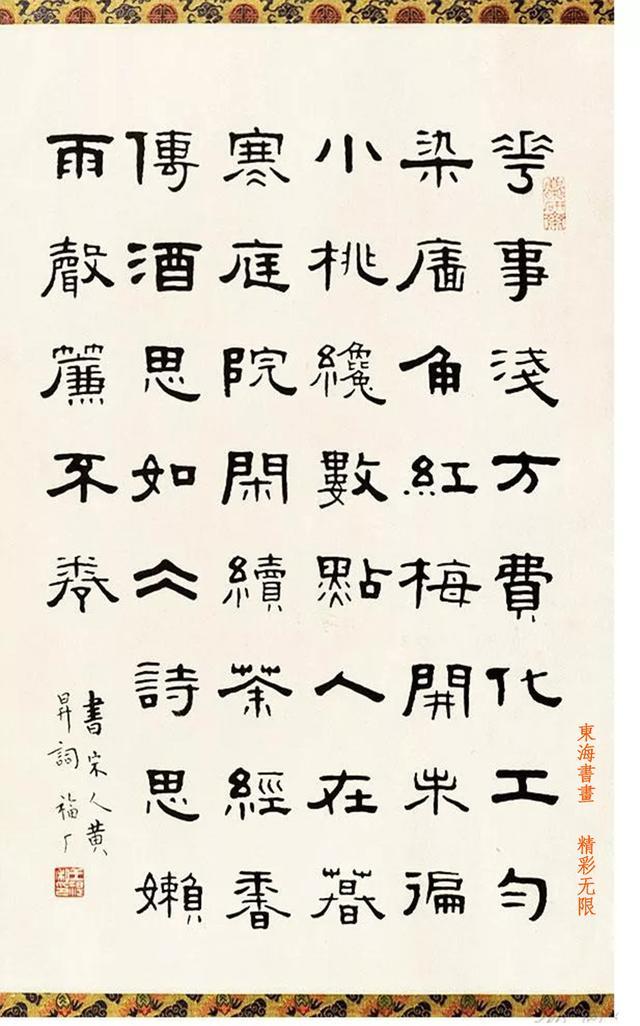 華事淺方費化工匀
染廧角紅梅開未徧
小桃纔數點人在暮
寒庭院閑續茶經香
傳酒思如仌詩思嬾
雨聲簾不卷
書宋人黄
昇詞 福厂
東海書畫 精彩无限